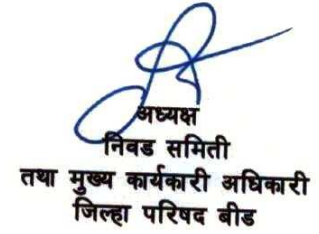 अध्यक्ष
निवड समिती
तथा मुख्य कार्यकारी अधिकारी
जिल्हा परिषद बीड